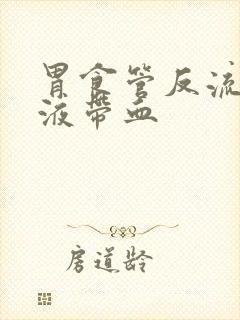 胃食管反流
液带血
房道龄